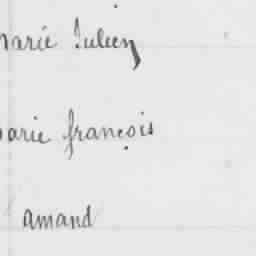 marie Julien
marie françois
amand